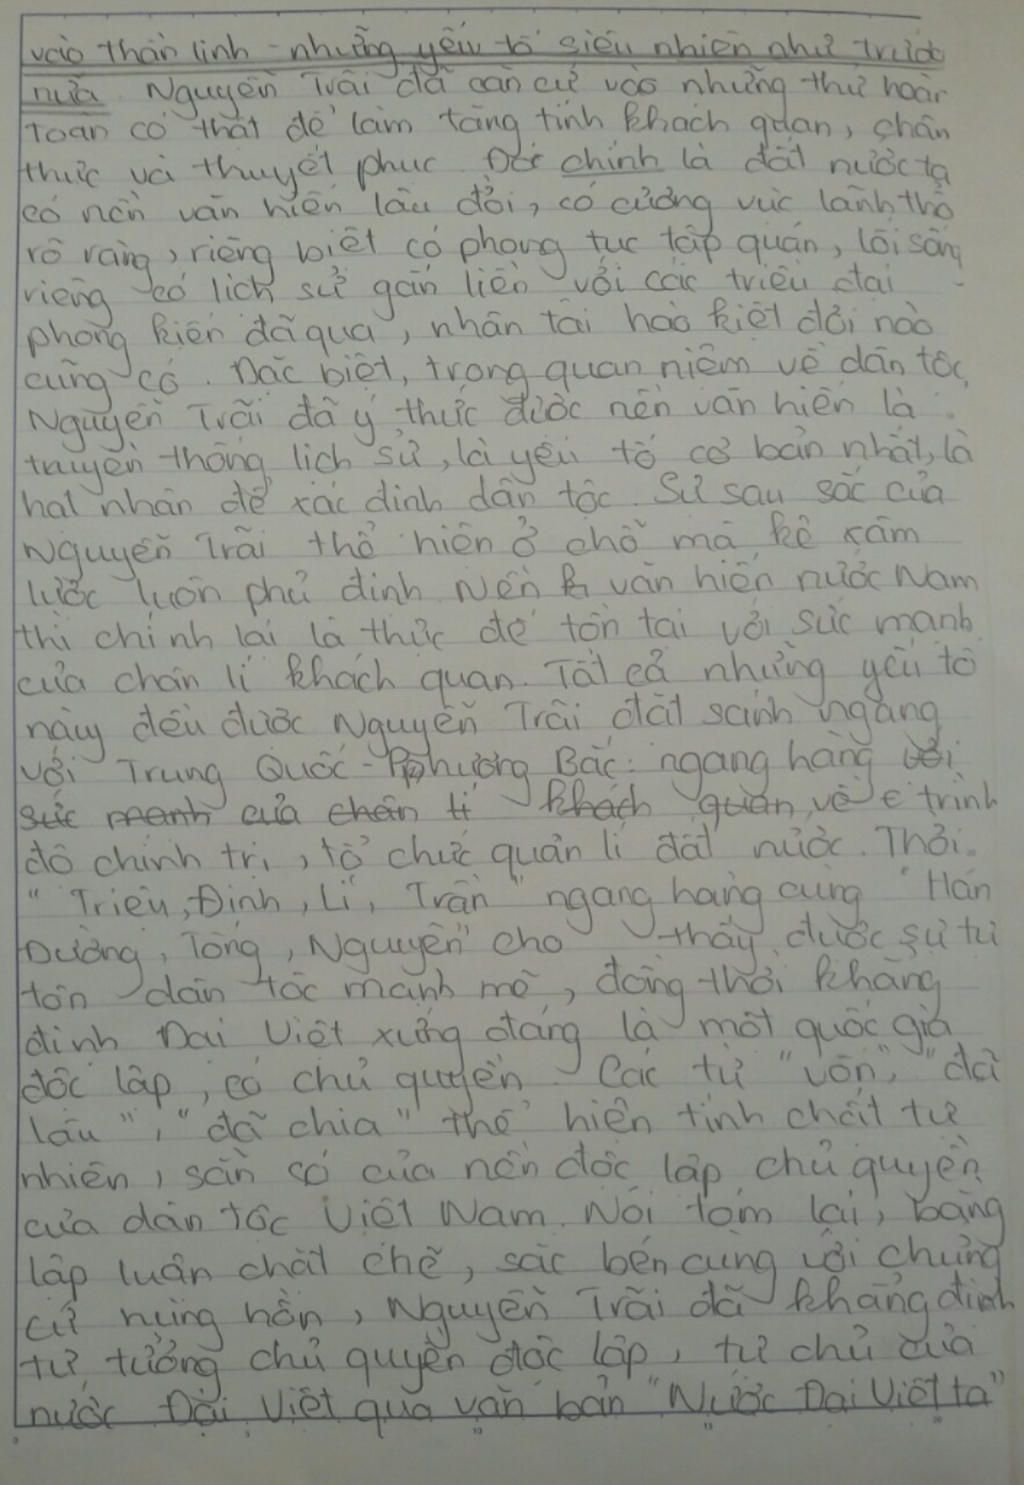 vào thần linh - những yếu tố siêu nhiên như trước
nữa. Nguyễn Trãi đã căn cứ vào những thứ hoàn
toàn có thật để làm tăng tính khách quan, chân
thực và thuyết phục. Đó chính là đất nước ta
có nền văn hiến lâu đời, có cương vực lãnh thổ
rõ ràng, riêng biệt có phong tục tập quán, lối sống
riêng có lịch sử gắn liền với các triều đại
phong kiến đã qua, nhân tài hào kiệt đời nào
cũng có. Đặc biệt, trong quan niệm về dân tộc,
Nguyễn Trãi đã ý thức được nền văn hiến là
truyền thống lịch sử, là yếu tố cơ bản nhất, là
hạt nhân để xác định dân tộc. Sự sâu sắc của
Nguyễn Trãi thể hiện ở chỗ mà kẻ xâm
lược luôn phủ định nền văn hiến nước Nam
thì chính lại là thực để tồn tại với sức mạnh
của chân lí khách quan. Tất cả những yếu tố
này đều được Nguyễn Trãi đặt sánh ngang
với Trung Quốc - Phương Bắc: ngang hàng với
sức mạnh của chân lí khách quan, về trình
độ chính trị, tổ chức quản lí đất nước. Thời
"Triệu, Đinh, Lí, Trần" ngang hàng cùng "Hán
Đường, Tống, Nguyên" cho thấy được sự tự
tôn dân tộc mạnh mẽ, đồng thời khẳng
định Đại Việt xứng đáng là một quốc gia
độc lập, có chủ quyền. Các từ "vốn", "đã
lâu", "đã chia" thể hiện tính chất tự
nhiên, sẵn có của nền độc lập chủ quyền
của dân tộc Việt Nam. Nói tóm lại, bằng
lập luận chặt chẽ, sắc bén cùng với chứng
cứ hùng hồn, Nguyễn Trãi đã khẳng định
tư tưởng chủ quyền độc lập, tự chủ của
nước Đại Việt qua văn bản "Nước Đại Việt ta"